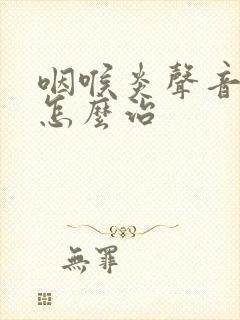 咽喉炎聲音
怎麼治
無罪